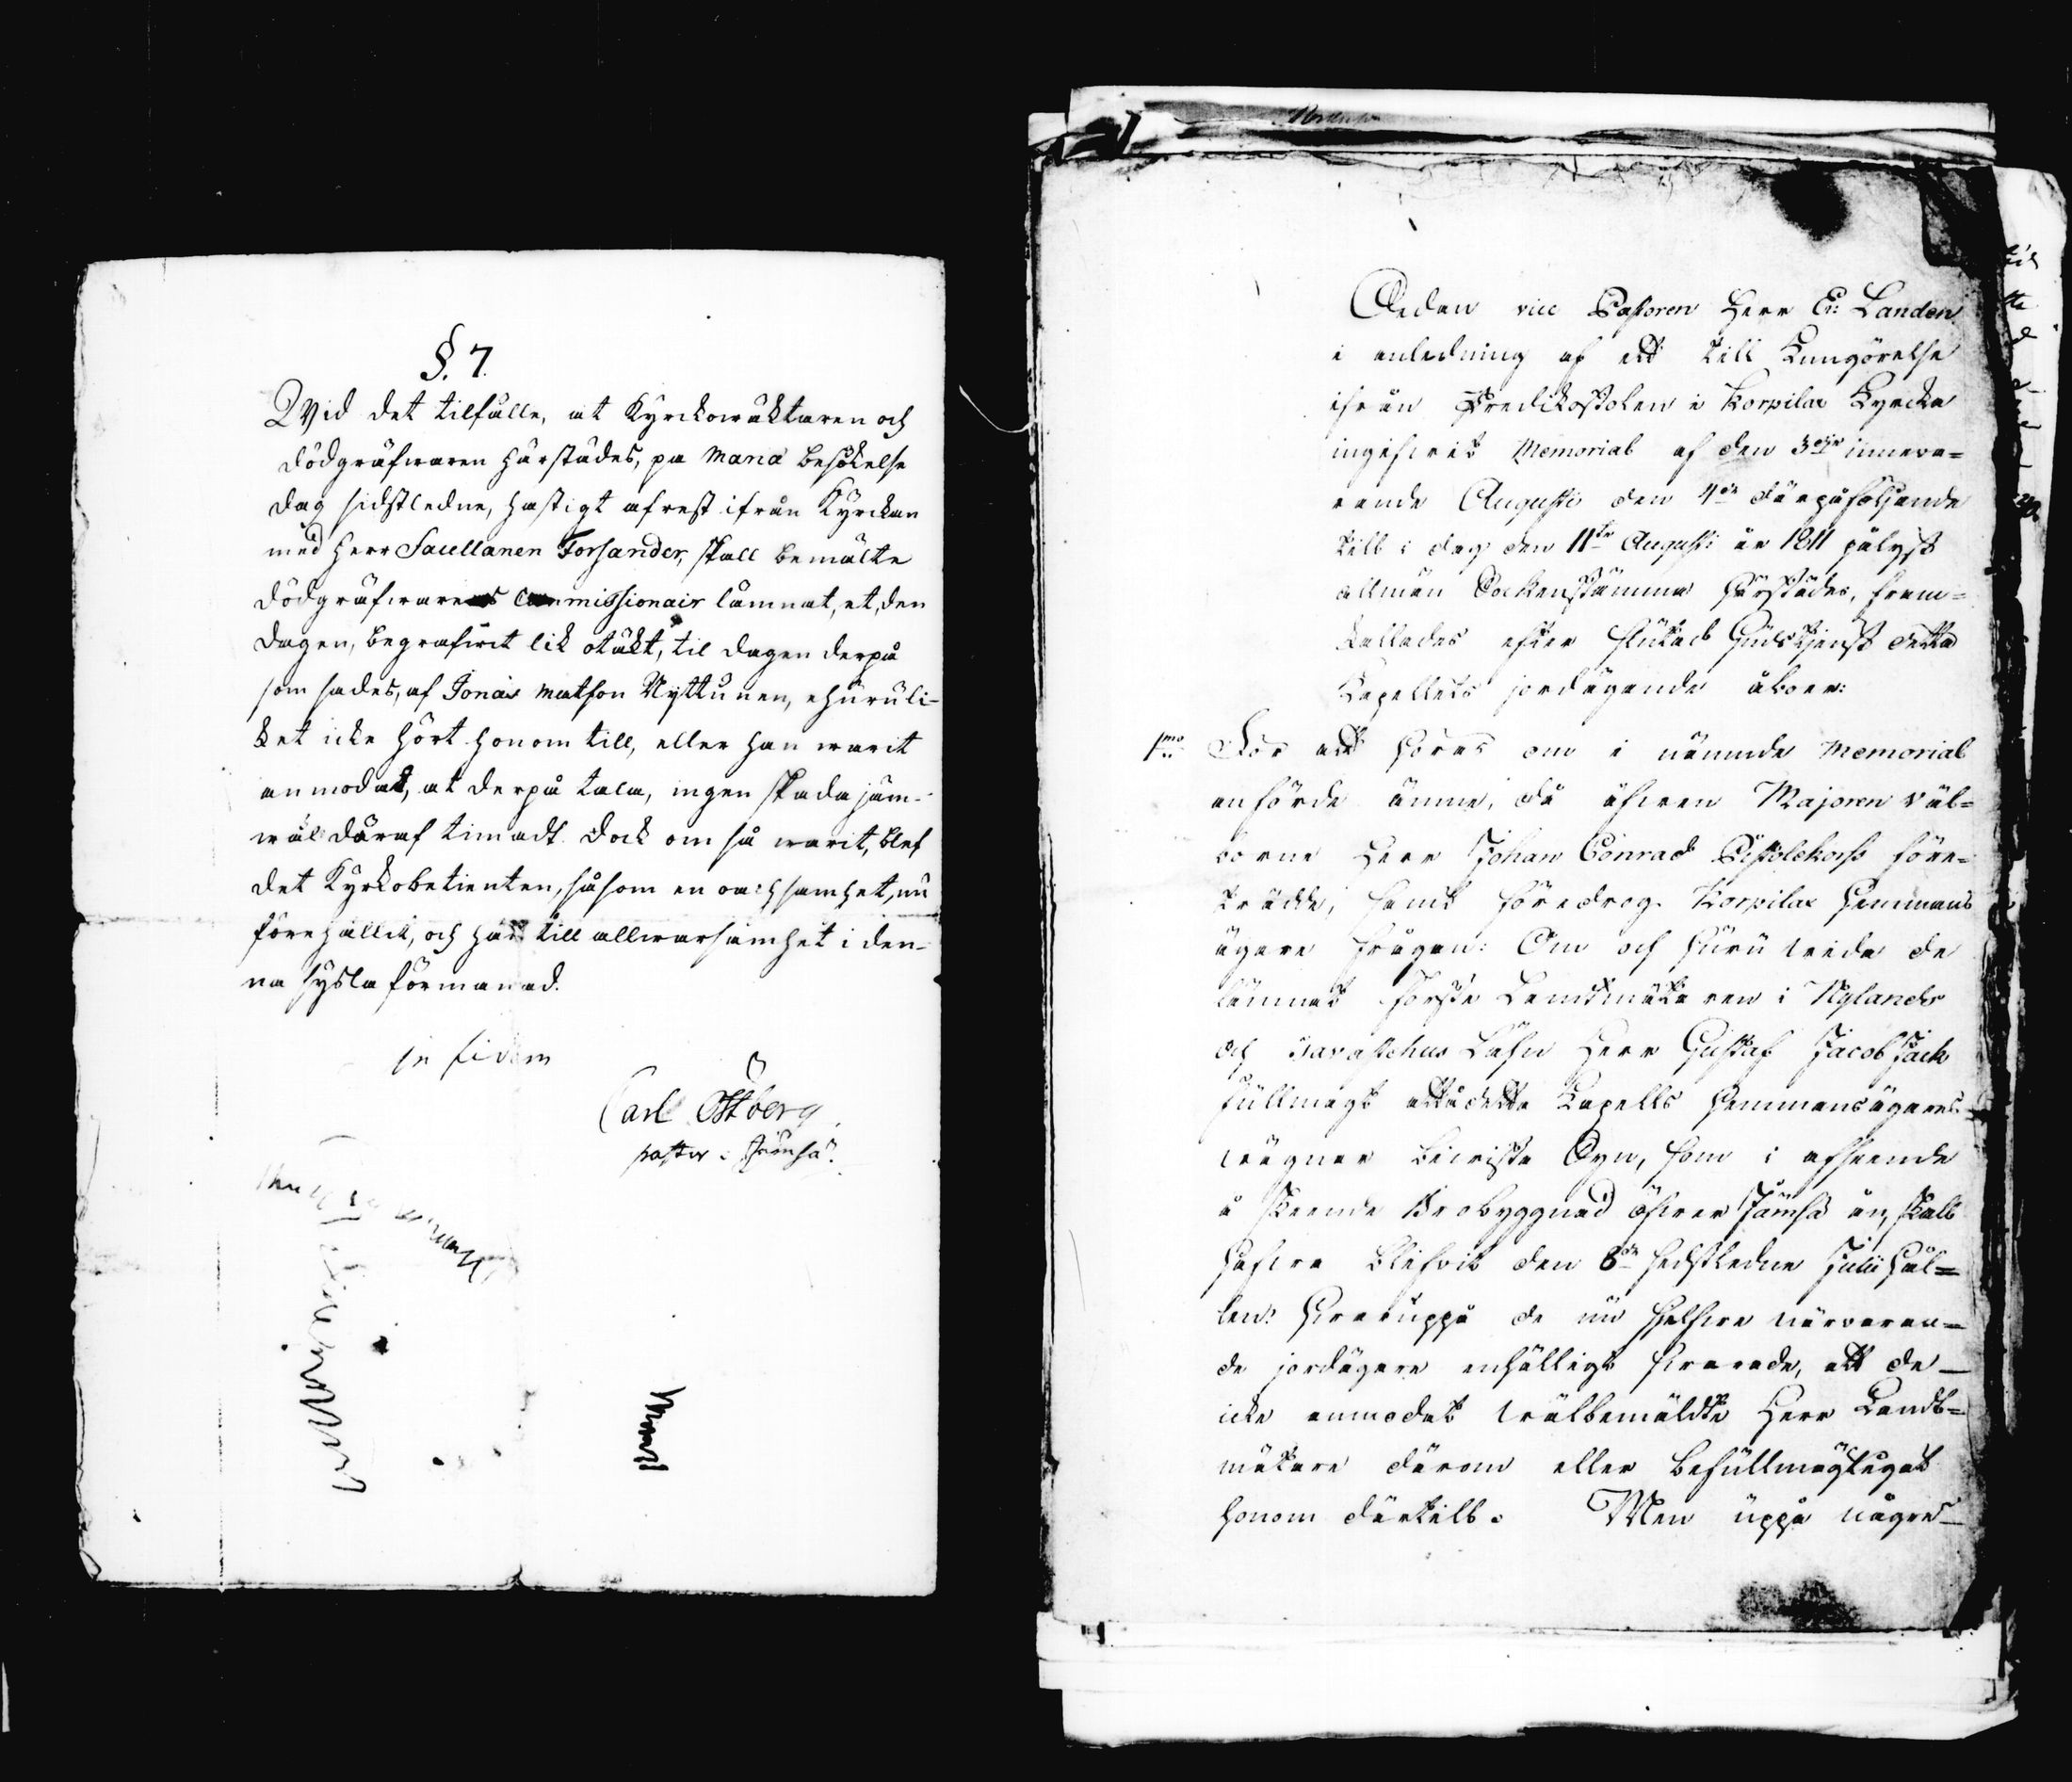 §. 7.
Wid det tilfälle, at Kyrckowäcktaren och
dödgräfwaren härstädes, på Mariæ besökelse
dag sidstledne, hastigt afrest ifrån Kyrckan
med Herr Sacellanen Forsander, skall bemälte
dödgräfwarens Commissionair lämnat, et, den
dagen, begrafwit lik otäkt, til dagen derpå
som sades, af Jonas Matson Nyttunen, ehuruli-
ket icke hört honom till, eller han warit
anmodat, at derpå tala, ingen skada jäm-
wäl däraf timadt. Dock om så warit, blef
det Kyrkobetienten, såsom en oachtsamhet, nu
förehållit, och han till allwarsamhet i den-
na sysla förmanad.
in fidem
Carl Östberg
pastor i Jämsä.
Sedan vice Pastoren Herr Er: Landen
i anledning af ett till Kungörelse
ifrån Predikostolen i Korpilax Kyrcka
ingifwit Memorial af den 3dje inneva-
rande Augusti den 4de därpåföljande
till i dag den 11te Augusti år 1811 pålyst
allmän Sockenstämma härstädes, fram-
kallades efter slutad Gudstjenst detta
Kapellets jordägande åboer:
1mo För att höras om i nämnde Memorial
anförde ämne, då äfwen Majoren väl-
borne Herr Johan Conrad Pistolekors före-
trädde, samt föredrog Korpilax Hemmans
ägare frågan: Om och huruwida de
lämnat Förste Landtmätaren i Nylands
och Tavastehus Lähn Herr Gustaf Jacob Jack
fullmagt att å detta Kapells Hemmansägares
wägnar bewista Syn, som i afseende
å skeende Brobyggnad öfwer Jämsä ån, skall
hafwa blifvit den 8de sidstledne Julii hål-
len: Hwaruppå de nu sjelfwe närvaran-
de jordägare enhälligt swarade, att de
icke anmodat wälbemäldte Herr Landt-
mätare därom eller befullmägtigat
honom därtill. Men uppå några